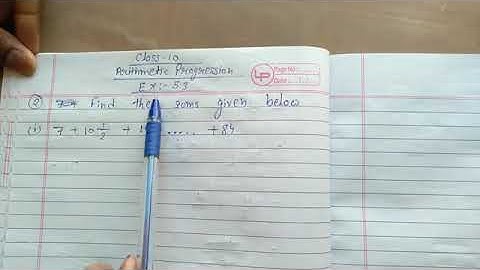 Class-10
Arithmetic Progression
Ex:- 5.3
LP
Page No.:
Date:
② Find the sums given below
(i) 7 + 10 1/2 + 1 ..... + 84